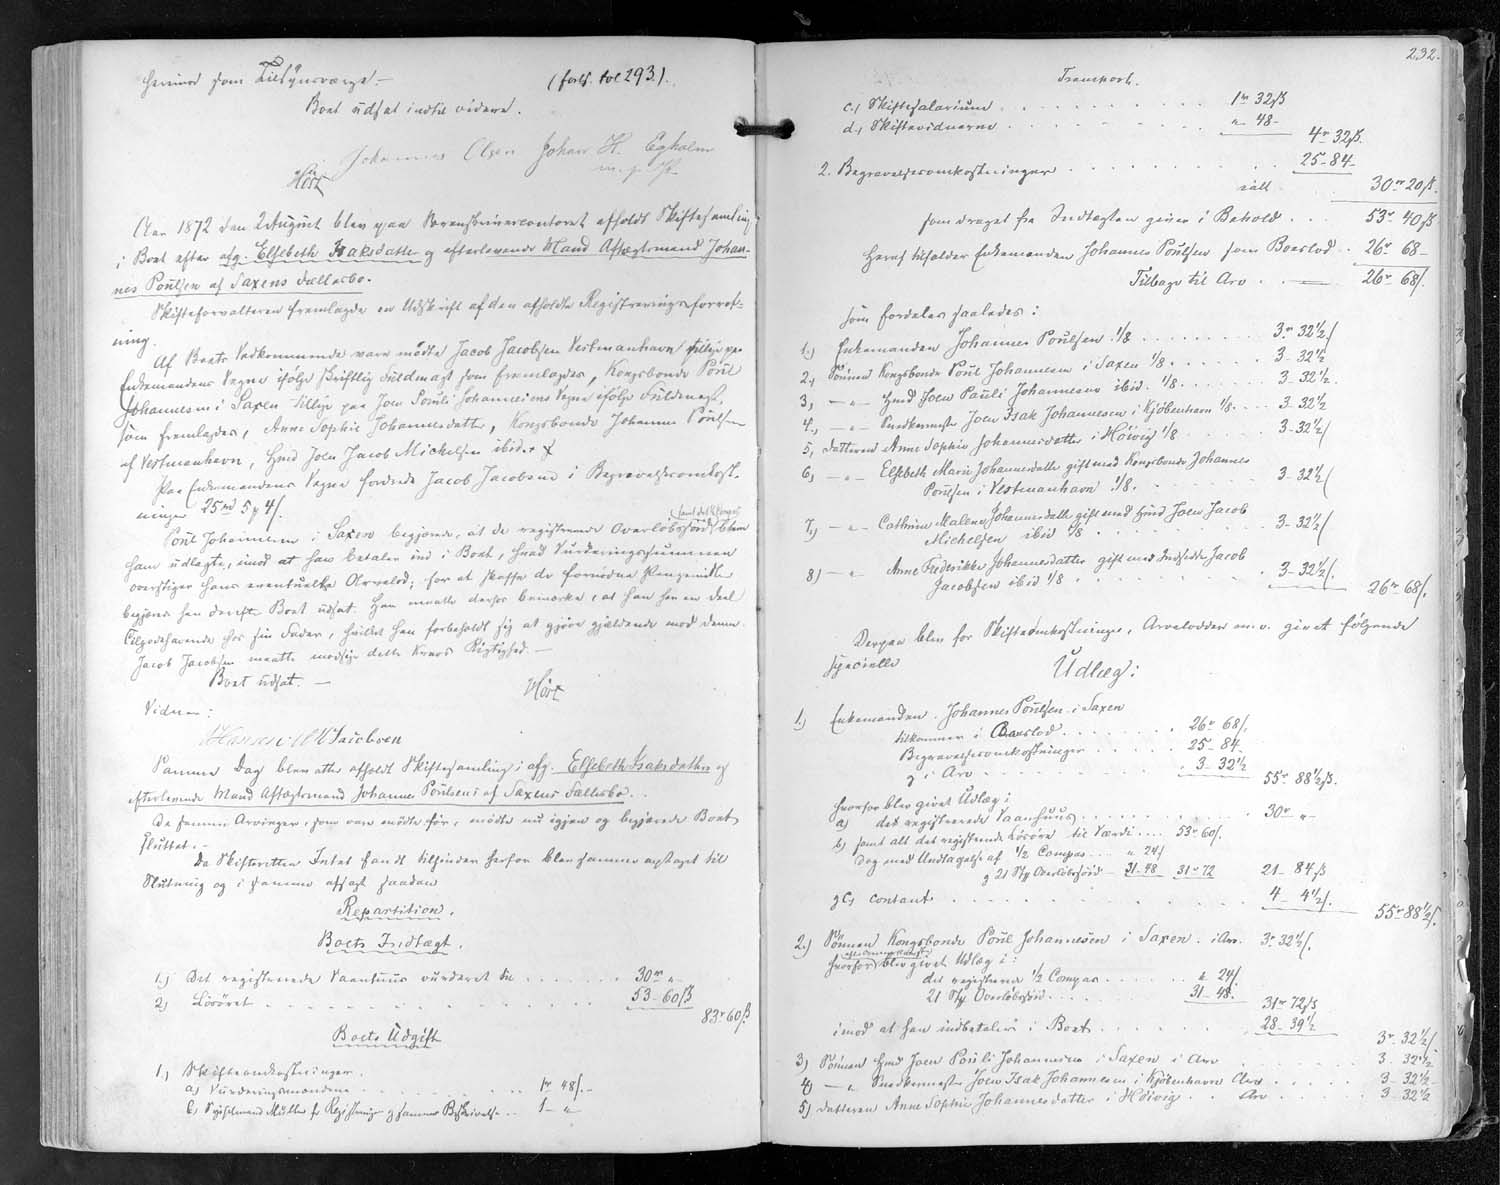 hermed som Tilsynsværge — (forts. fol 293.)
Boet udsat indtil videre.
Johannes Olsen Johan H. Egholm
m. p. P.
Hört
Aar 1872 den 2 August blev paa Sorenskrivercontoret afholdt Skiftesamling
i Boet efter afg. Elsebeth Isaksdatter og efterlevende Mand Aftægtsmand Johan-
nes Poulsen af Saxens Fællesbo.
Skifteforvalteren fremlagde en Udskrift af den afholdte Registreringsforret-
ning.
Af Boets Vedkommende vare mødte Jacob Jacobsen Vestmanhavn tillige paa
Enkemandens Vegne ifølge skriftlig Fuldmagt som fremlagdes, Kongsbonde Poul
Johannesen i Saxen tillige paa Joen Pauli Johannesens Vegne ifølge Fuldmagt,
som fremlagdes, Anne Sophie Johannesdatter, Kongsbonde Johannes Poulsen
af Vestmanhavn, Hmd Joen Jacob Michelsen ibid.
Paa Enkemandens Vegne fordrede Jacob Jacobsen i Begravelsesomkost-
ninger 25 rd 5 ¥ 4 /.
Poul Johannesen i Saxen begjærede, at de registrerede Overløbsfjöld blev
ham udlagte, imod at han betaler ind i Boet, hvad Vurderingssummen
overstiger hans eventuelle Arvelod; for at skaffe de fornødne Pengemidler
begjæres han derefter Boet udsat. Han maatte derfor bemærke, at han har en Deel
Tilgodehavende hos sin Fader, hvilket han forbeholdt sig at gjøre gjældende mod denne.
Jacob Jacobsen maatte modsige dette Kravs Rigtighed. —
Boet udsat. —
Hört
Vidner:
Jacobsen
Samme Dag blev atter afholdt Skiftesamling i afg. Elsebeth Isaksdatter og
efterlevende Mand Aftægtsmand Johannes Poulsens af Saxens Fællesbo.
De samme Arvinger, som vare mødte før, mødte nu igjen og begjærede Boet
sluttet. —
Da Skifteretten Intet fandt tilhinder herfor blev samme optaget til
Slutning og i samme afsagt saadan
Repartition.
Boets Indtægt.
1.) Det registrerede Vaanhuus vurderet til . . . . . . 30 rd „
2) Lösöret . . . . . . 53 — 60 ß
83 r 60 ß
Boets Udgift
1.) Skifteomkostninger.
a) Vurderingsmændene . . . . . . 1 r 48 /. —
b) Sysselmand Müller for Registrering og sammes Beskrivelse . . 1 — „
232.
Transport.
c.) Skiftesalarium . . . . . . 1 rd 32 ß
d.) Skiftevidnerne . . . . . . „ 48 —
4 r 32 ß.
2. Begravelsesomkostninger . . . . . . 25 — 84 —
ialt 30 rd 20 ß.
som draget fra Indtægten giver i Behold . . 53 r 40 ß
Heraf tilfalder Enkemanden Johannes Poulsen som Boeslod . . 26 r 68 —
Tilbage til Arv . . 26 r 68 /.
som fordeles saaledes:
1.) Enkemanden Johannes Poulsen 1/8 . . . . . . 3 r 32 ½ /
2.) Sönnen Kongsbonde Poul Johannesen i Saxen 1/8 . . . 3 — 32 ½
3.) — „ — Hmd Joen Pauli Johannesen ibid. 1/8 . . . . 3 — 32 ½.
4.) — „ — Snedkermester Joen Isak Johannesen i Kjöbenhavn 1/8 . . 3 — 32 ½
5.) Datteren Anne Sophie Johannesdatter i Hóivig 1/8 . . . 3 — 32 ½ /
6.) — „ — Elsebeth Marie Johannesdatter gift med Kongsbonde Johannes
Poulsen i Vestmanhavn 1/8 . . . . 3 — 32 ½ /
7.) — „ — Cathrine Malene Johannesdatter gift med Hmd Joen Jacob
Michelsen ibid 1/8 . . . . 3 — 32 ½ /
8) — „ — Anne Frederikke Johannesdatter gift med Indsidder Jacob
Jacobsen ibid 1/8 . . . . 3 — 32 ½ /.
26 r 68 /.
Derpaa blev for Skifteomkostninger, Arvelodder m. v. givet følgende
specielle
Udlæg:
1.) Enkemanden Johannes Poulsen i Saxen
tilkommer i Boeslod . . . . . . 26 r 68 /.
Begravelsesomkostninger . . . . 25 — 84
og i Arv . . . . . . 3 — 32 ½
55 r 88 ½ ß.
hvorfor blev givet Udlæg i
a) det registrerede Vaanhuus . . . . . . 30 r „ —
b) samt alt det registrerede Lösöre til Værdi . . . . 53 r 60 /.
Dog med Undtagelse af ½ Compas . . . „ 24 /
og 21 Stk Overløbsfjöld — 31 — 48 31 r 72 21 — 84 ß
og c) contant . . . . . . 4 — 4 ½ /.
55 r 88 ½ /.
2.) Sönnen Kongsbonde Poul Johannesen i Saxen . i Arv. 3 r 32 ½ /.
hvorfor blev givet Udlæg i:
det registrerede ½ Compas . . . . „ 24 /.
21 Stk Overløbsfjöld . . . . 31 — 48.
31 r 72 ß
imod at han indbetaler i Boet . . . . . . 28 — 39 ½
3 r 32 ½ /
3) Sönnen Hmd Joen Pauli Johannesen i Saxen i Arv . . . 3 — 32 ½
4) — „ Snedkermester Joen Isak Johannesen i Kjöbenhavn Arv . . . 3 — 32 ½ —
5) Datteren Anne Sophie Johannesdatter i Hóivig . . Arv . . . 3 — 32 ½